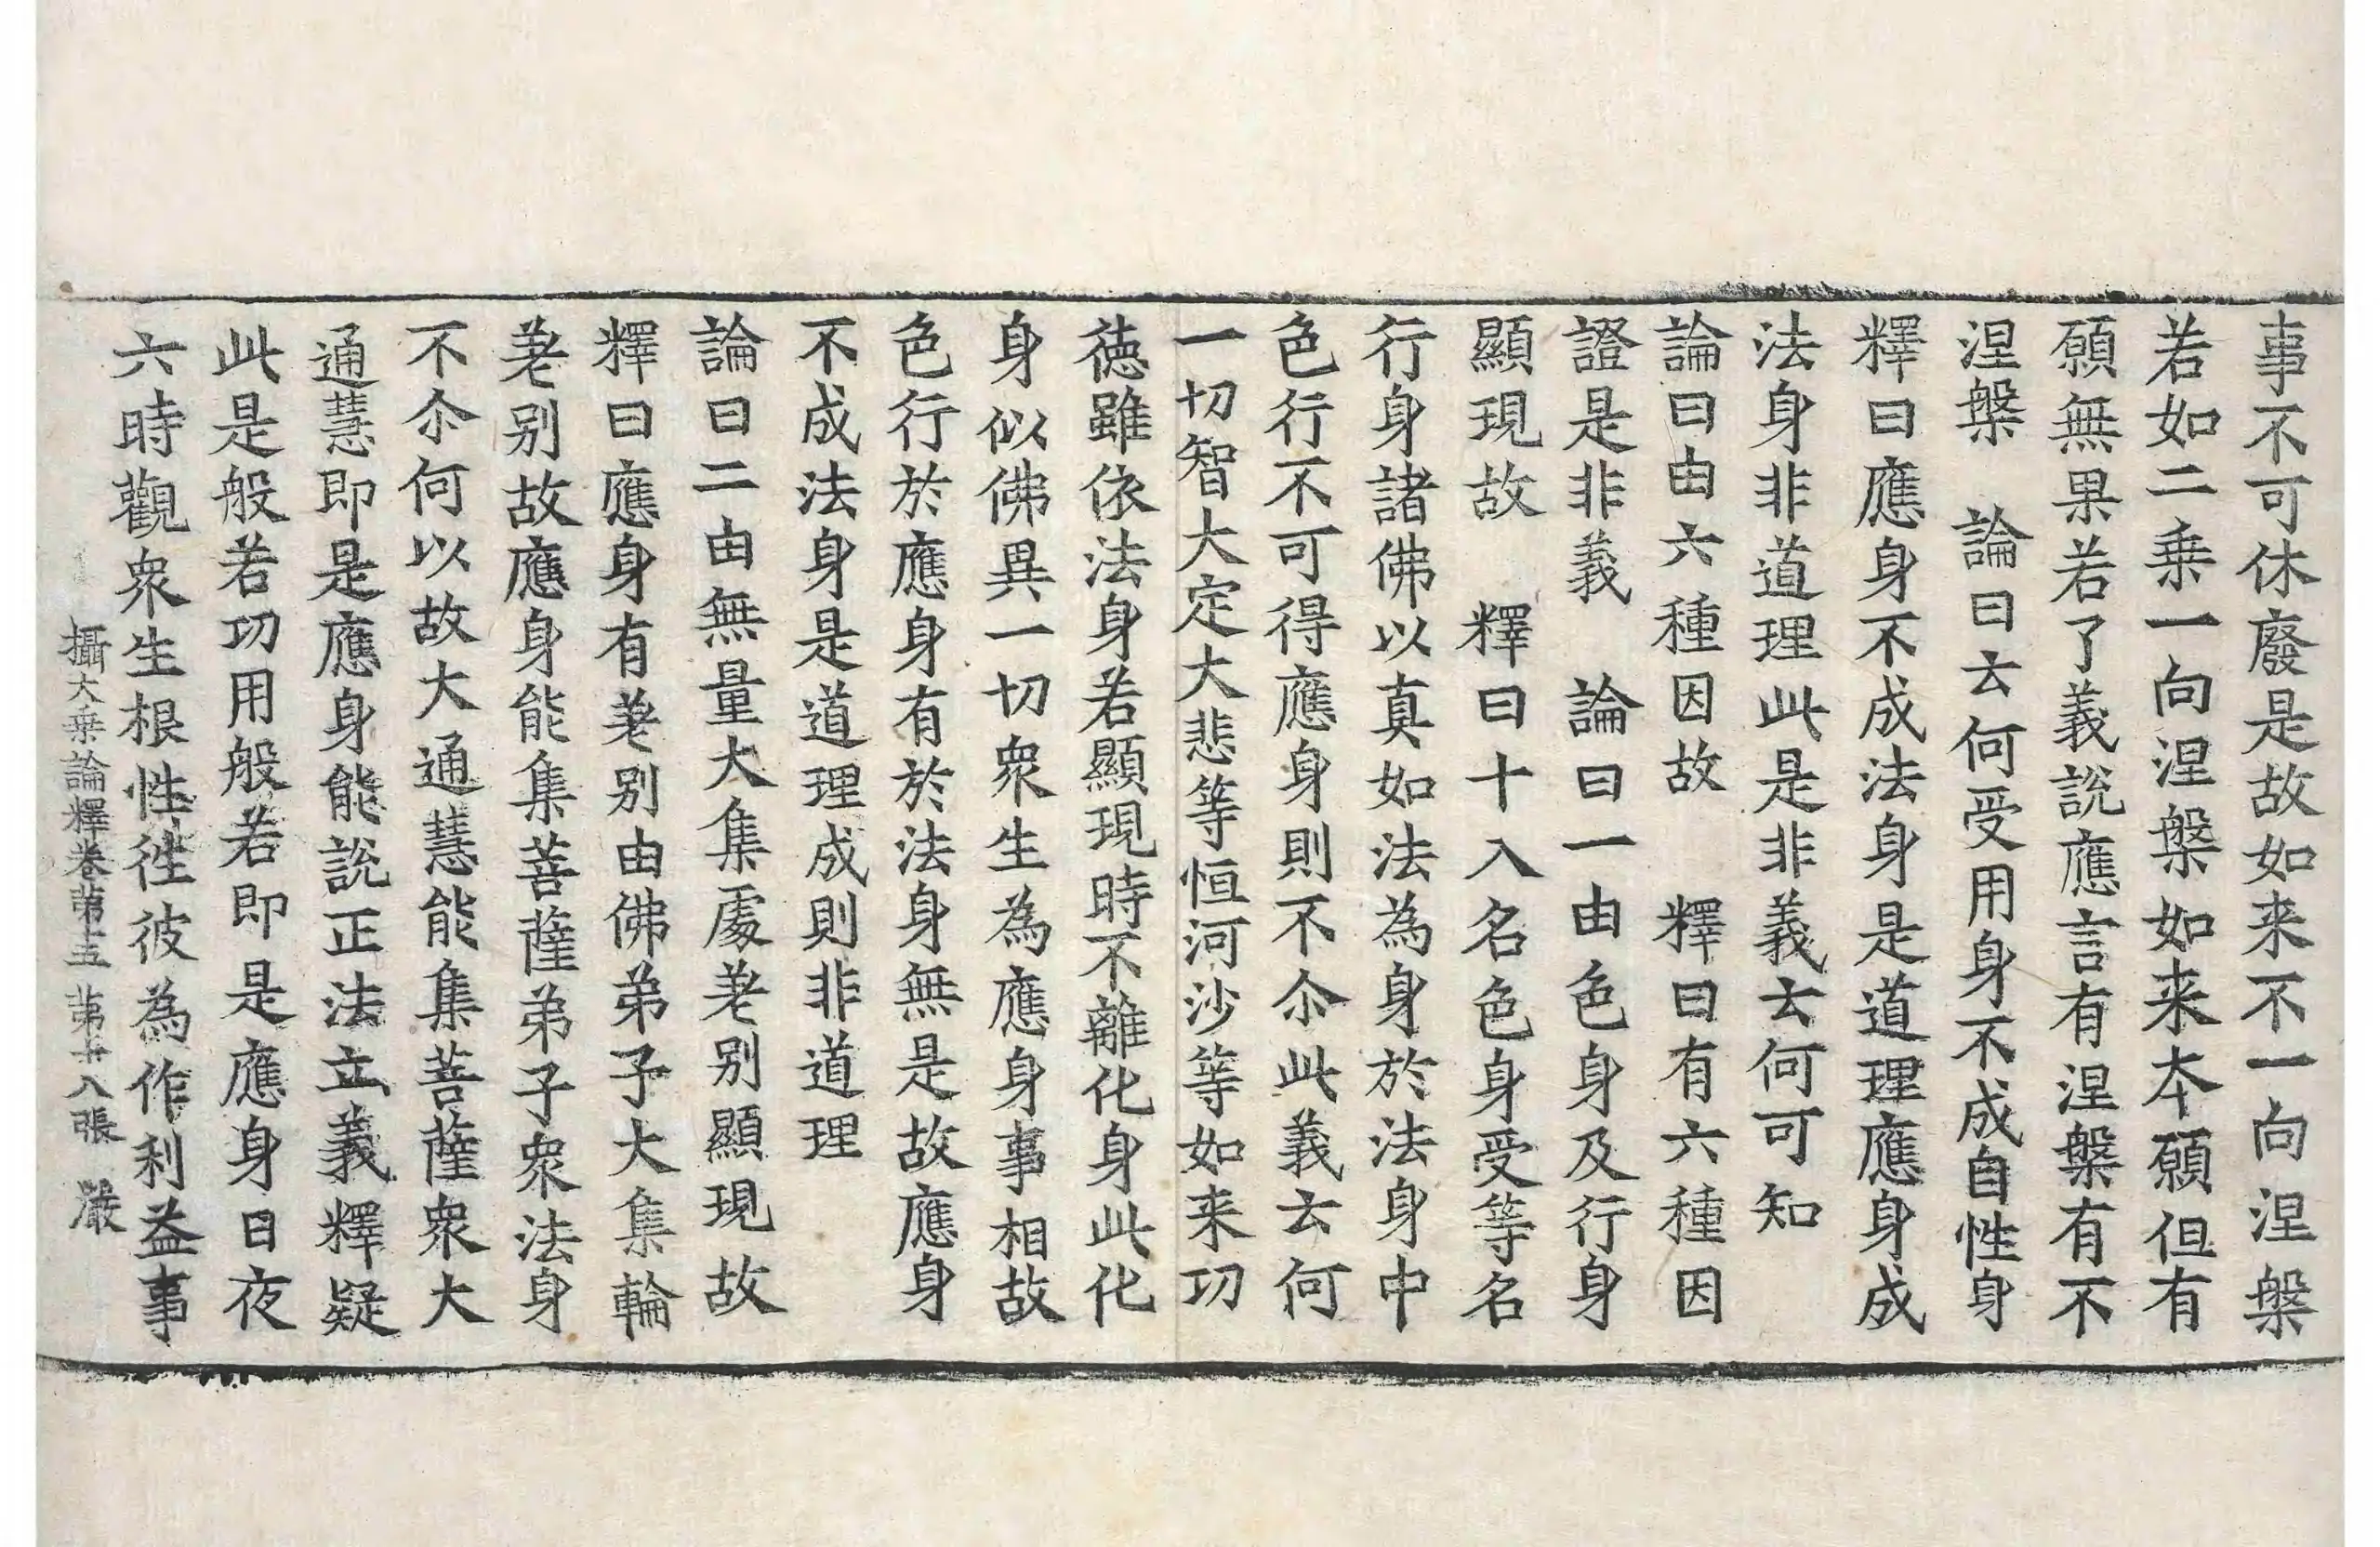 事不可休廢是故如来不一向涅槃
若如二乗一向涅槃如来本願但有
願無果若了義說應言有涅槃有不
涅槃　論曰云何受用身不成自性身
釋曰應身不成法身是道理應身成
法身非道理此是非義云何可知
論曰由六種因故　釋曰有六種因
證是非義　論曰一由色身及行身
顯現故　釋曰十入名色身受等名
行身諸佛以真如法為身於法身中
色行不可得應身則不尒此義云何
一切智大定大悲等恒河沙等如来功
徳雖依法身若顯現時不離化身此化
身似佛異一切衆生為應身事相故
色行於應身有於法身無是故應身
不成法身是道理成則非道理
論曰二由無量大集處差别顯現故
釋曰應身有差别由佛弟子大集輪
差别故應身能集菩薩弟子衆法身
不尒何以故大通慧能集菩薩衆大
通慧即是應身能說正法立義釋疑
此是般若功用般若即是應身日夜
六時觀衆生根性徃彼為作利益事
攝大乗論釋卷苐十五　苐十八張　嚴